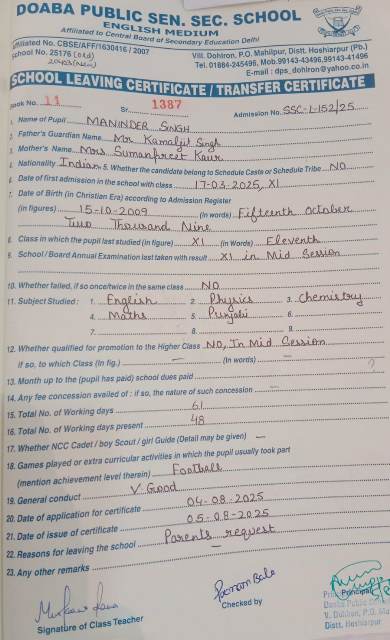 DOABA PUBLIC SEN. SEC. SCHOOL
ENGLISH MEDIUM
Affiliated to Central Board of Secondary Education Delhi
Affiliated No. CBSE/AFF/1630416 / 2007
School No. 25176 (Old)
20403 (New)
Vill. Dohlron, P.O. Mahilpur, Distt. Hoshiarpur (Pb.)
Tel. 01884-245496, Mob.99143-43496,99143-41496
E-mail : dps_dohlron@yahoo.co.in
SCHOOL LEAVING CERTIFICATE / TRANSFER CERTIFICATE
Book No. 11 Sr. 1387 Admission No. SSC-1-152/25
1. Name of Pupil MANINDER SINGH
2. Father's Guardian Name Mr. Kamaljit Singh
3. Mother's Name Mrs Sumanpreet Kaur
4. Nationality Indian 5. Whether the candidate belong to Schedule Caste or Schedule Tribe NO
6. Date of first admission in the school with class 17-03-2025, XI
7. Date of Birth (in Christian Era) according to Admission Register
(in figures) 15-10-2009 (in words) Fifteenth October
Two Thousand Nine
8. Class in which the pupil last studied (in figure) XI (in Words) Eleventh
9. School / Board Annual Examination last taken with result XI in Mid Session
10. Whether failed, if so once/twice in the same class NO
11. Subject Studied : 1. English 2. Physics 3. Chemistry
4. Maths 5. Punjabi 6.
7. 8. 9.
12. Whether qualified for promotion to the Higher Class NO, In Mid Session
If so, to which Class (In fig.) — (In words) —
13. Month up to the (pupil has paid) school dues paid
14. Any fee concession availed of : if so, the nature of such concession —
15. Total No. of Working days 61
16. Total No. of Working days present 48
17. Whether NCC Cadet / boy Scout / girl Guide (Detail may be given) —
18. Games played or extra curricular activities in which the pupil usually took part
(mention achievement level therein) Football
19. General conduct V. Good
20. Date of application for certificate 04-08-2025
21. Date of issue of certificate 05-08-2025
22. Reasons for leaving the school Parents request
23. Any other remarks —
Signature of Class Teacher
Poonam Bala
Checked by
Principal
Doaba Public
V. Dohlron, P.O.
Distt. Hoshiarpur